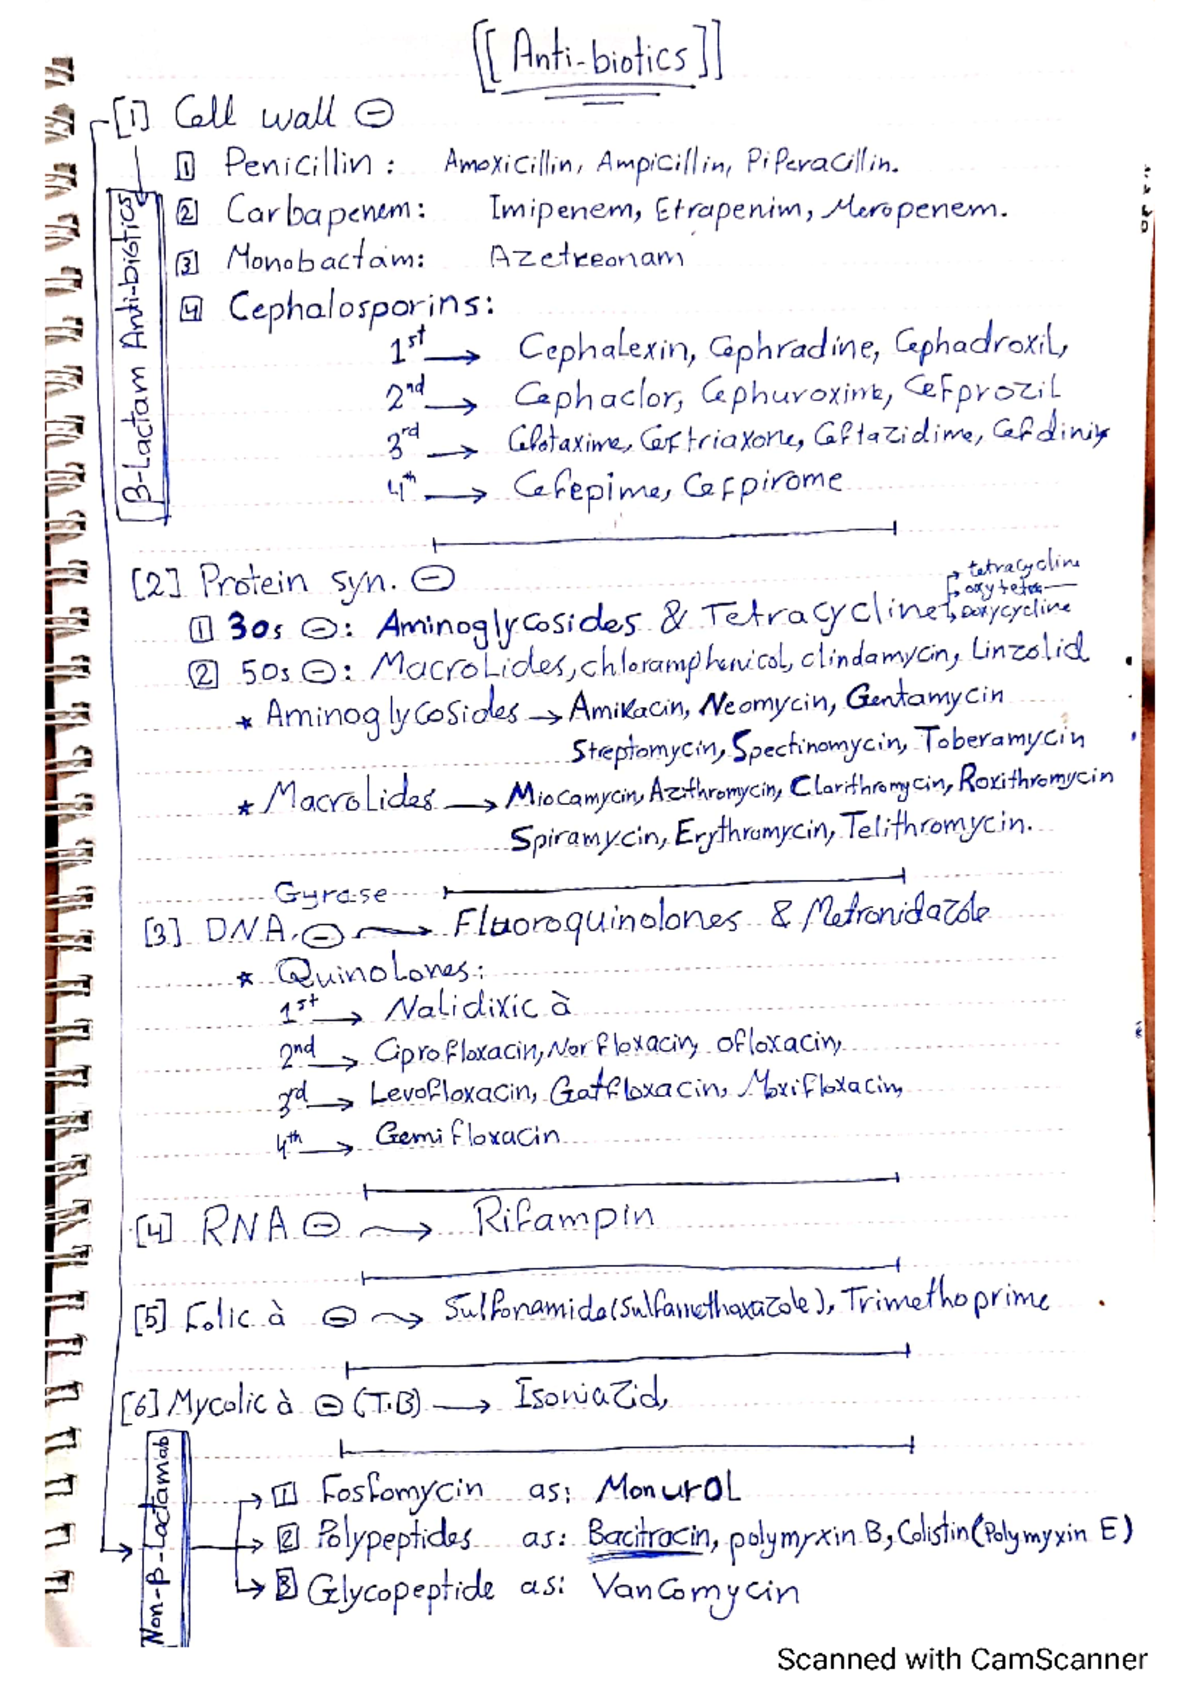 [[ Anti-biotics ]]
[1] Cell wall ⊖
1 Penicillin : Amoxicillin, Ampicillin, Piperacillin.
2 Carbapenem: Imipenem, Etrapenim, Meropenem.
3 Monobactam: Azetreonam
4 Cephalosporins:
1st → Cephalexin, Cephradine, Cephadroxil,
2nd → Cephaclor, Cephuroxime, Cefprozil
3rd → Cefotaxime, Ceftriaxone, Ceftazidime, Cefdinir
4th → Cefepime, Cefpirome
β-Lactam Anti-biotics
[2] Protein syn. ⊖
→ tetracycline
→ oxytetra—
1 30s ⊖: Aminoglycosides & Tetracycline → Doxycycline
2 50s ⊖: Macrolides, chloramphenicol, clindamycin, Linzolid
* Aminoglycosides → Amikacin, Neomycin, Gentamycin
Streptomycin, Spectinomycin, Toberamycin
* Macrolides → Miocamycin, Azithromycin, Clarithromycin, Roxithromycin
Spiramycin, Erythromycin, Telithromycin.
Gyrase
[3] DNA ⊖ → Fluoroquinolones & Metronidazole
* Quinolones:
1st → Nalidixic à
2nd → Ciprofloxacin, Norfloxacin, ofloxacin,
3rd → Levofloxacin, Gatfloxacin, Moxifloxacin,
4th → Gemifloxacin
[4] RNA ⊖ → Rifampin
[5] Folic à ⊖ → Sulfonamide (Sulfamethoxazole), Trimethoprime
[6] Mycolic à ⊖ (T.B) → Isoniazid,
Non-β-Lactamab
→ 1 Fosfomycin as: Monurol
→ 2 Polypeptides as: Bacitracin, polymyxin B, Colistin (Polymyxin E)
→ 3 Glycopeptide as: Vancomycin
Scanned with CamScanner